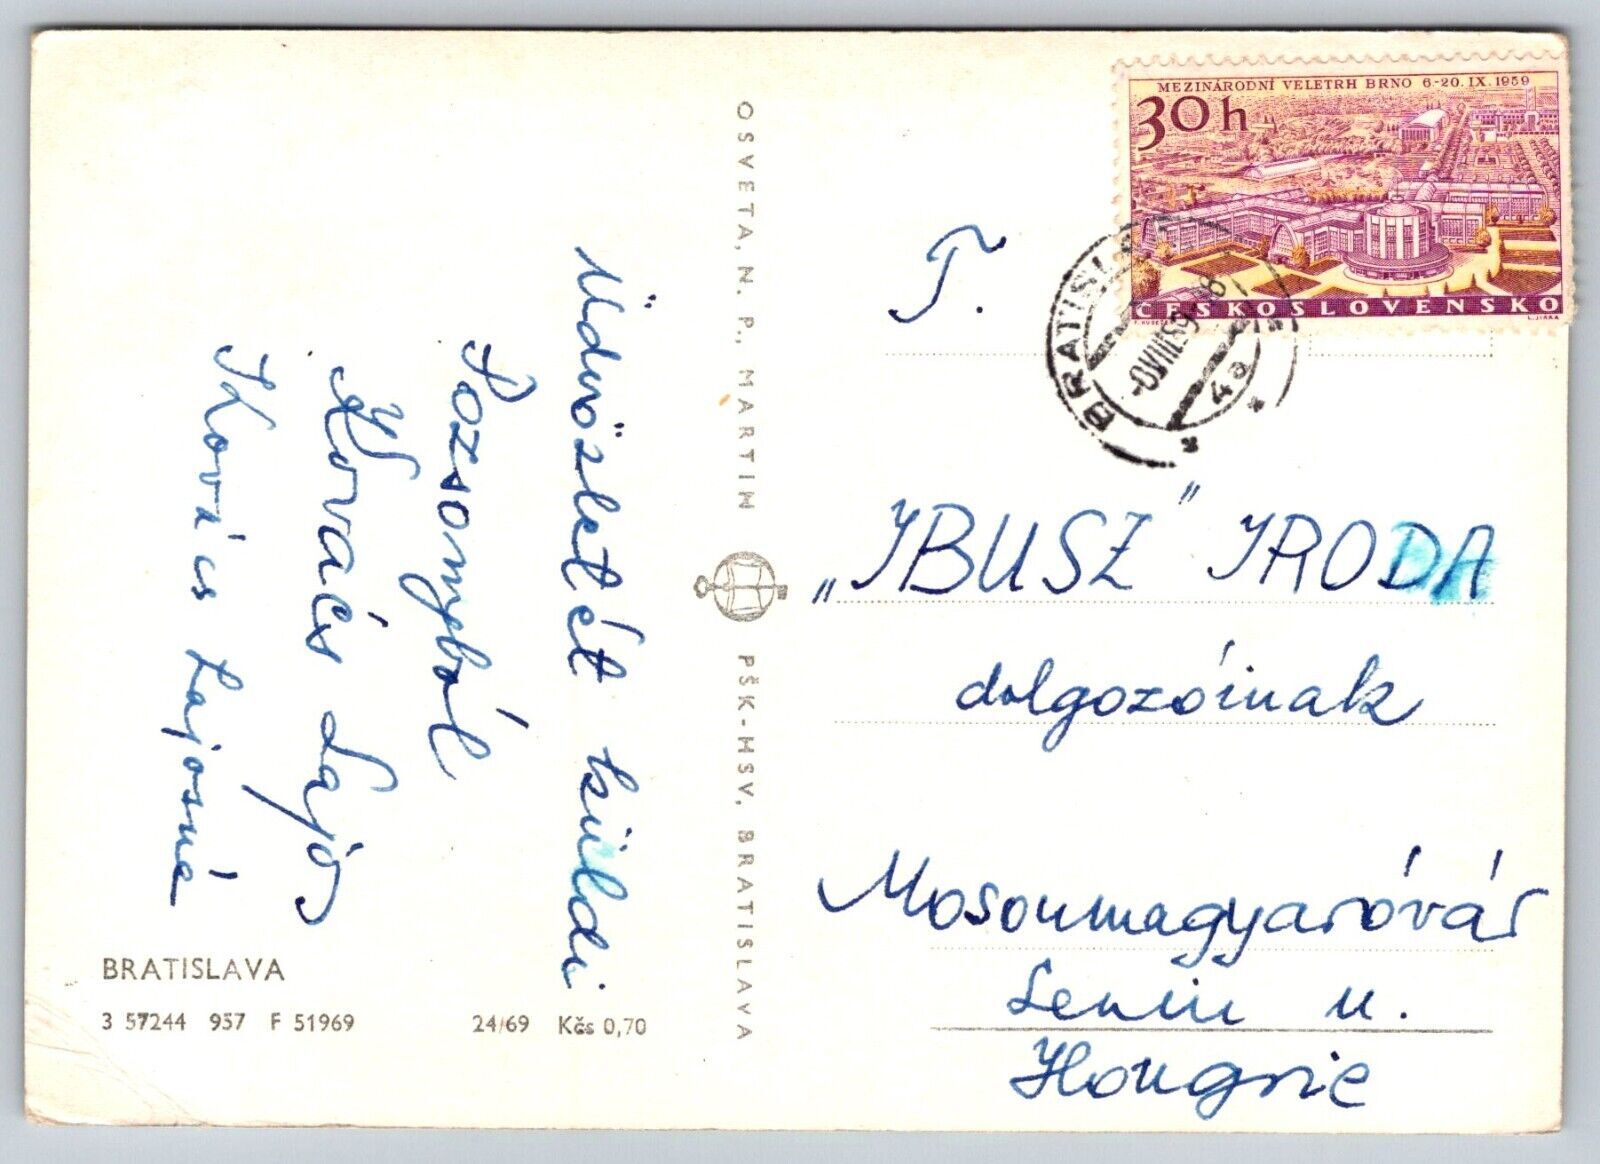 Üdvözletét küldi
Pozsonyból
Kovács Lajos
Kovács Lajosné
BRATISLAVA
3 57244 957 F 51969 24/69 Kčs 0,70
OSVETA, N. P., MARTIN PŠK-HSV, BRATISLAVA
MEZINÁRODNÍ VELETRH BRNO 6-20. IX. 1959
30 h
ČESKOSLOVENSKO
L. JIRKA
BRATISLAVA
4a
T.
„IBUSZ" IRODA
dolgozóinak
Mosonmagyaróvár
Lenin u.
Hongrie